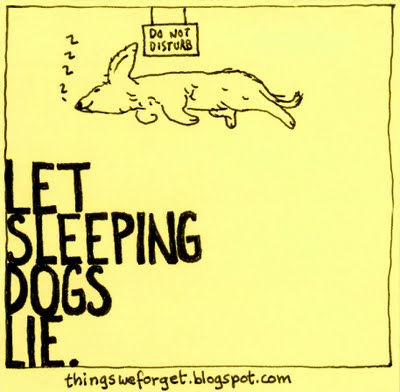 DO NOT
DISTURB
z
z
z
z
LET
SLEEPING
DOGS
LIE.
thingsweforget.blogspot.com